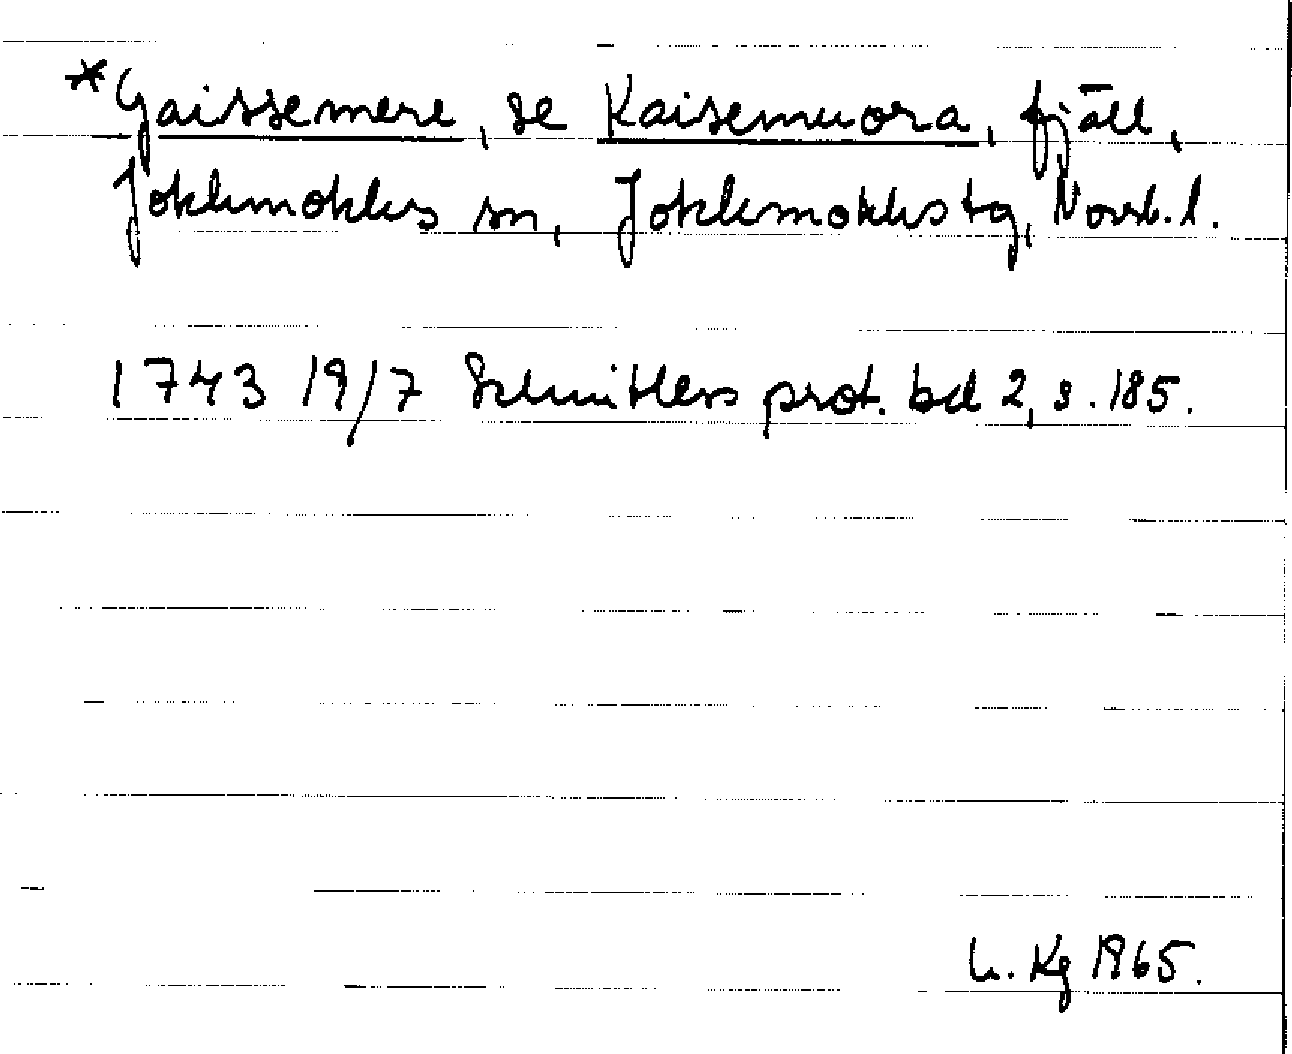 *Gaissemere, se Kaisemuora, fjäll,
Jokkmokks sn, Jokkmokks tg, Norrb. l.
1743 19/7 Schnitlers prot. bd 2, s. 185.
L. Kg 1965.